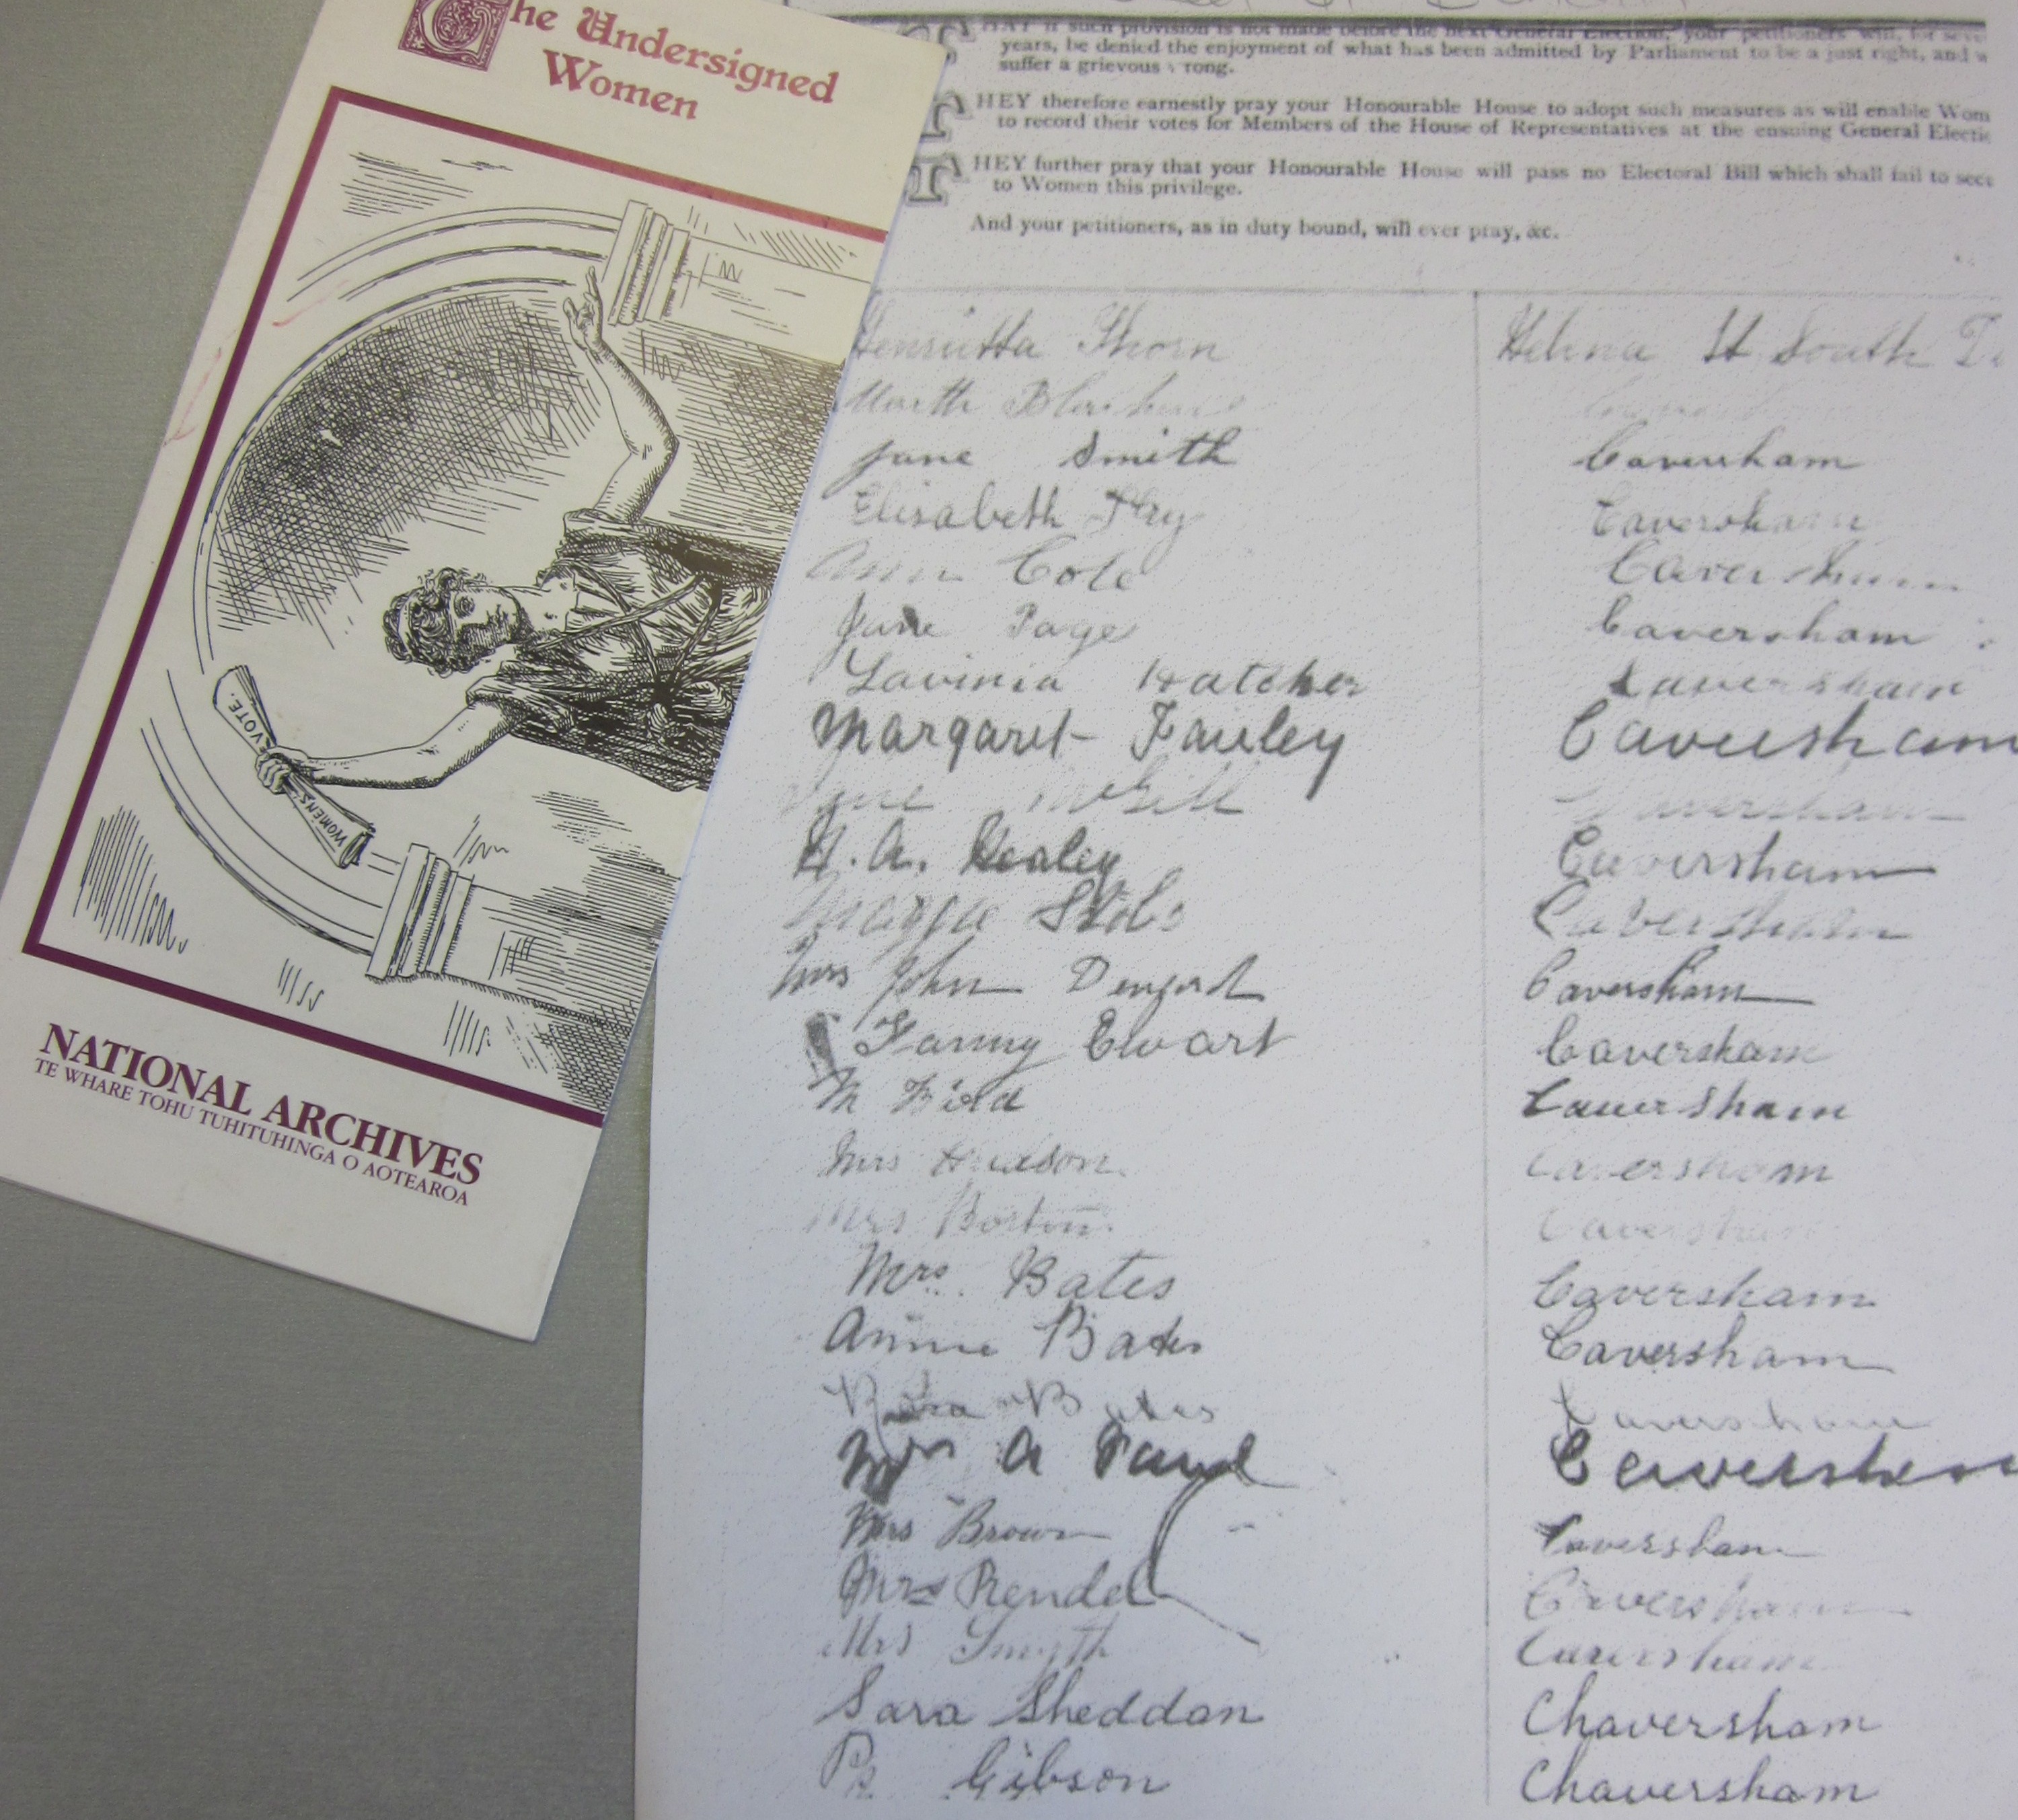 The Undersigned
Women
VOTE.
WOMEN'S
NATIONAL ARCHIVES
TE WHARE TOHU TUHITUHINGA O AOTEAROA
THAT if such provision is not made before the next General Election, your petitioners will, for
years, be denied the enjoyment of what has been admitted by Parliament to be a just right, and
suffer a grievous wrong.
THEY therefore earnestly pray your Honourable House to adopt such measures as will enable Wom
to record their votes for Members of the House of Representatives at the ensuing General Electi
THEY further pray that your Honourable House will pass no Electoral Bill which shall fail to sec
to Women this privilege.
And your petitioners, as in duty bound, will ever pray, &c.
Henrietta Thorn Helena St South
Jane Smith Caversham
Elisabeth Caversham
Ann Cole Caversham
Jane Page Caversham
Lavinia Hatcher Caversham
Margaret Fauley Caversham
Jane McGill Caversham
H. A. Healey Caversham
Maggie Caversham
Mrs John Caversham
Fanny Ewart Caversham
M Bird Caversham
Mrs Hudson Caversham
Mrs Caversham
Mrs. Bates Caversham
Annie Bates Caversham
Bates Caversham
Mrs A Caversham
Mrs Brown Caversham
Mrs Rendel Caversham
Mrs Smyth Caversham
Sara Sheddan Chaversham
Gibson Chaversham